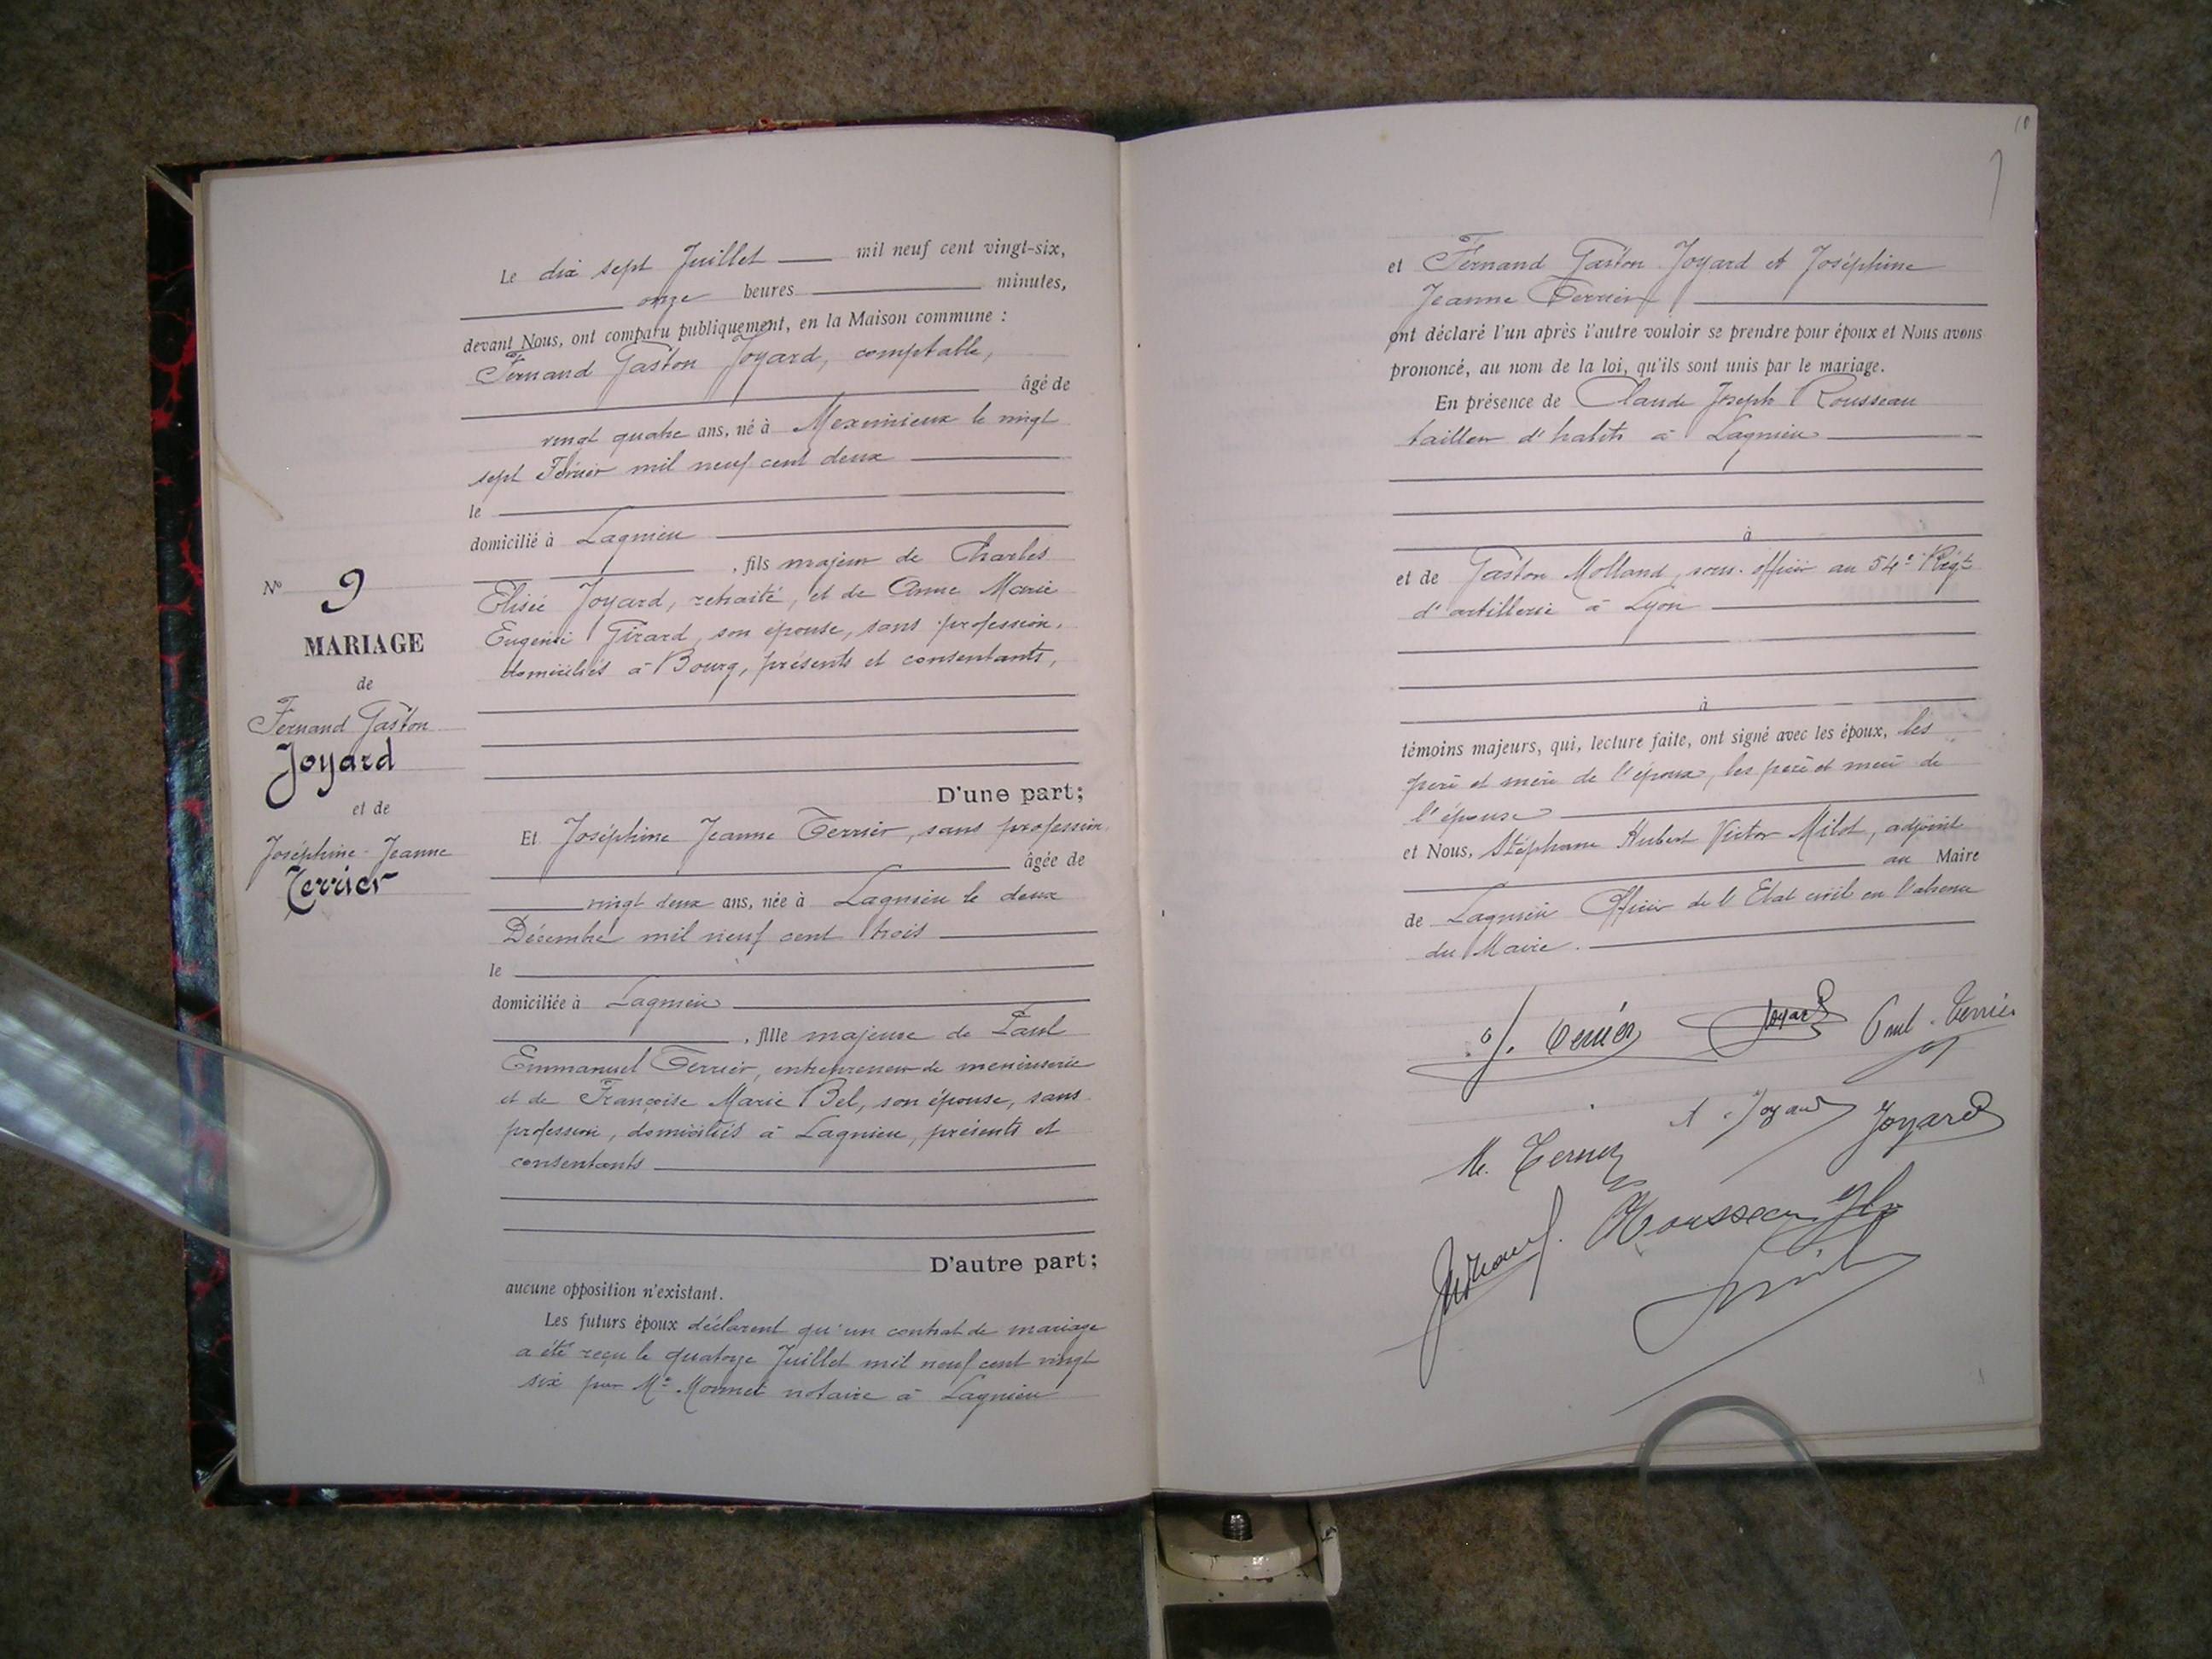 Le dix sept Juillet mil neuf cent vingt-six,
onze heures minutes,
devant Nous, ont comparu publiquement, en la Maison commune :
Fernand Gaston Joyard, comptable,
âgé de
vingt quatre ans, né à Meximieux le vingt
sept Février mil neuf cent deux
le
domicilié à Lagnieu
, fils majeur de Charles
Elisée Joyard, retraité, et de Anne Marie
Eugénie Girard, son épouse, sans profession,
domiciliés à Bourg, présents et consentants,
N° 9
MARIAGE
de
Fernand Gaston
Joyard
et de
Joséphine-Jeanne
Terrier
D'une part;
Et Joséphine Jeanne Terrier, sans profession,
âgée de
vingt deux ans, née à Lagnieu le deux
Décembre mil neuf cent trois
le
domiciliée à Lagnieu
, fille majeure de Paul
Emmanuel Terrier, entrepreneur de menuiserie
et de Françoise Marie Bel, son épouse, sans
profession, domiciliés à Lagnieu, présents et
consentants
D'autre part;
aucune opposition n'existant.
Les futurs époux déclarent qu'un contrat de mariage
a été reçu le quatorze Juillet mil neuf cent vingt
six par Me Monnet notaire à Lagnieu
10
et Fernand Gaston Joyard et Joséphine
Jeanne Terrier
ont déclaré l'un après l'autre vouloir se prendre pour époux et Nous avons
prononcé, au nom de la loi, qu'ils sont unis par le mariage.
En présence de Claude Joseph Rousseau
tailleur d'habits à Lagnieu
à
et de Gaston Molland, sous-officier au 54e Régt
d'artillerie à Lyon
à
témoins majeurs, qui, lecture faite, ont signé avec les époux, les
père et mère de l'époux, les père et mère de
l'épouse
et Nous, Stéphane Hubert Victor Milot, adjoint
au Maire
de Lagnieu Officier de l'Etat civil en l'absence
du Maire.
J. Terrier Joyard Paul Terrier
M. Terrier A. Joyard Joyard
Rousseau